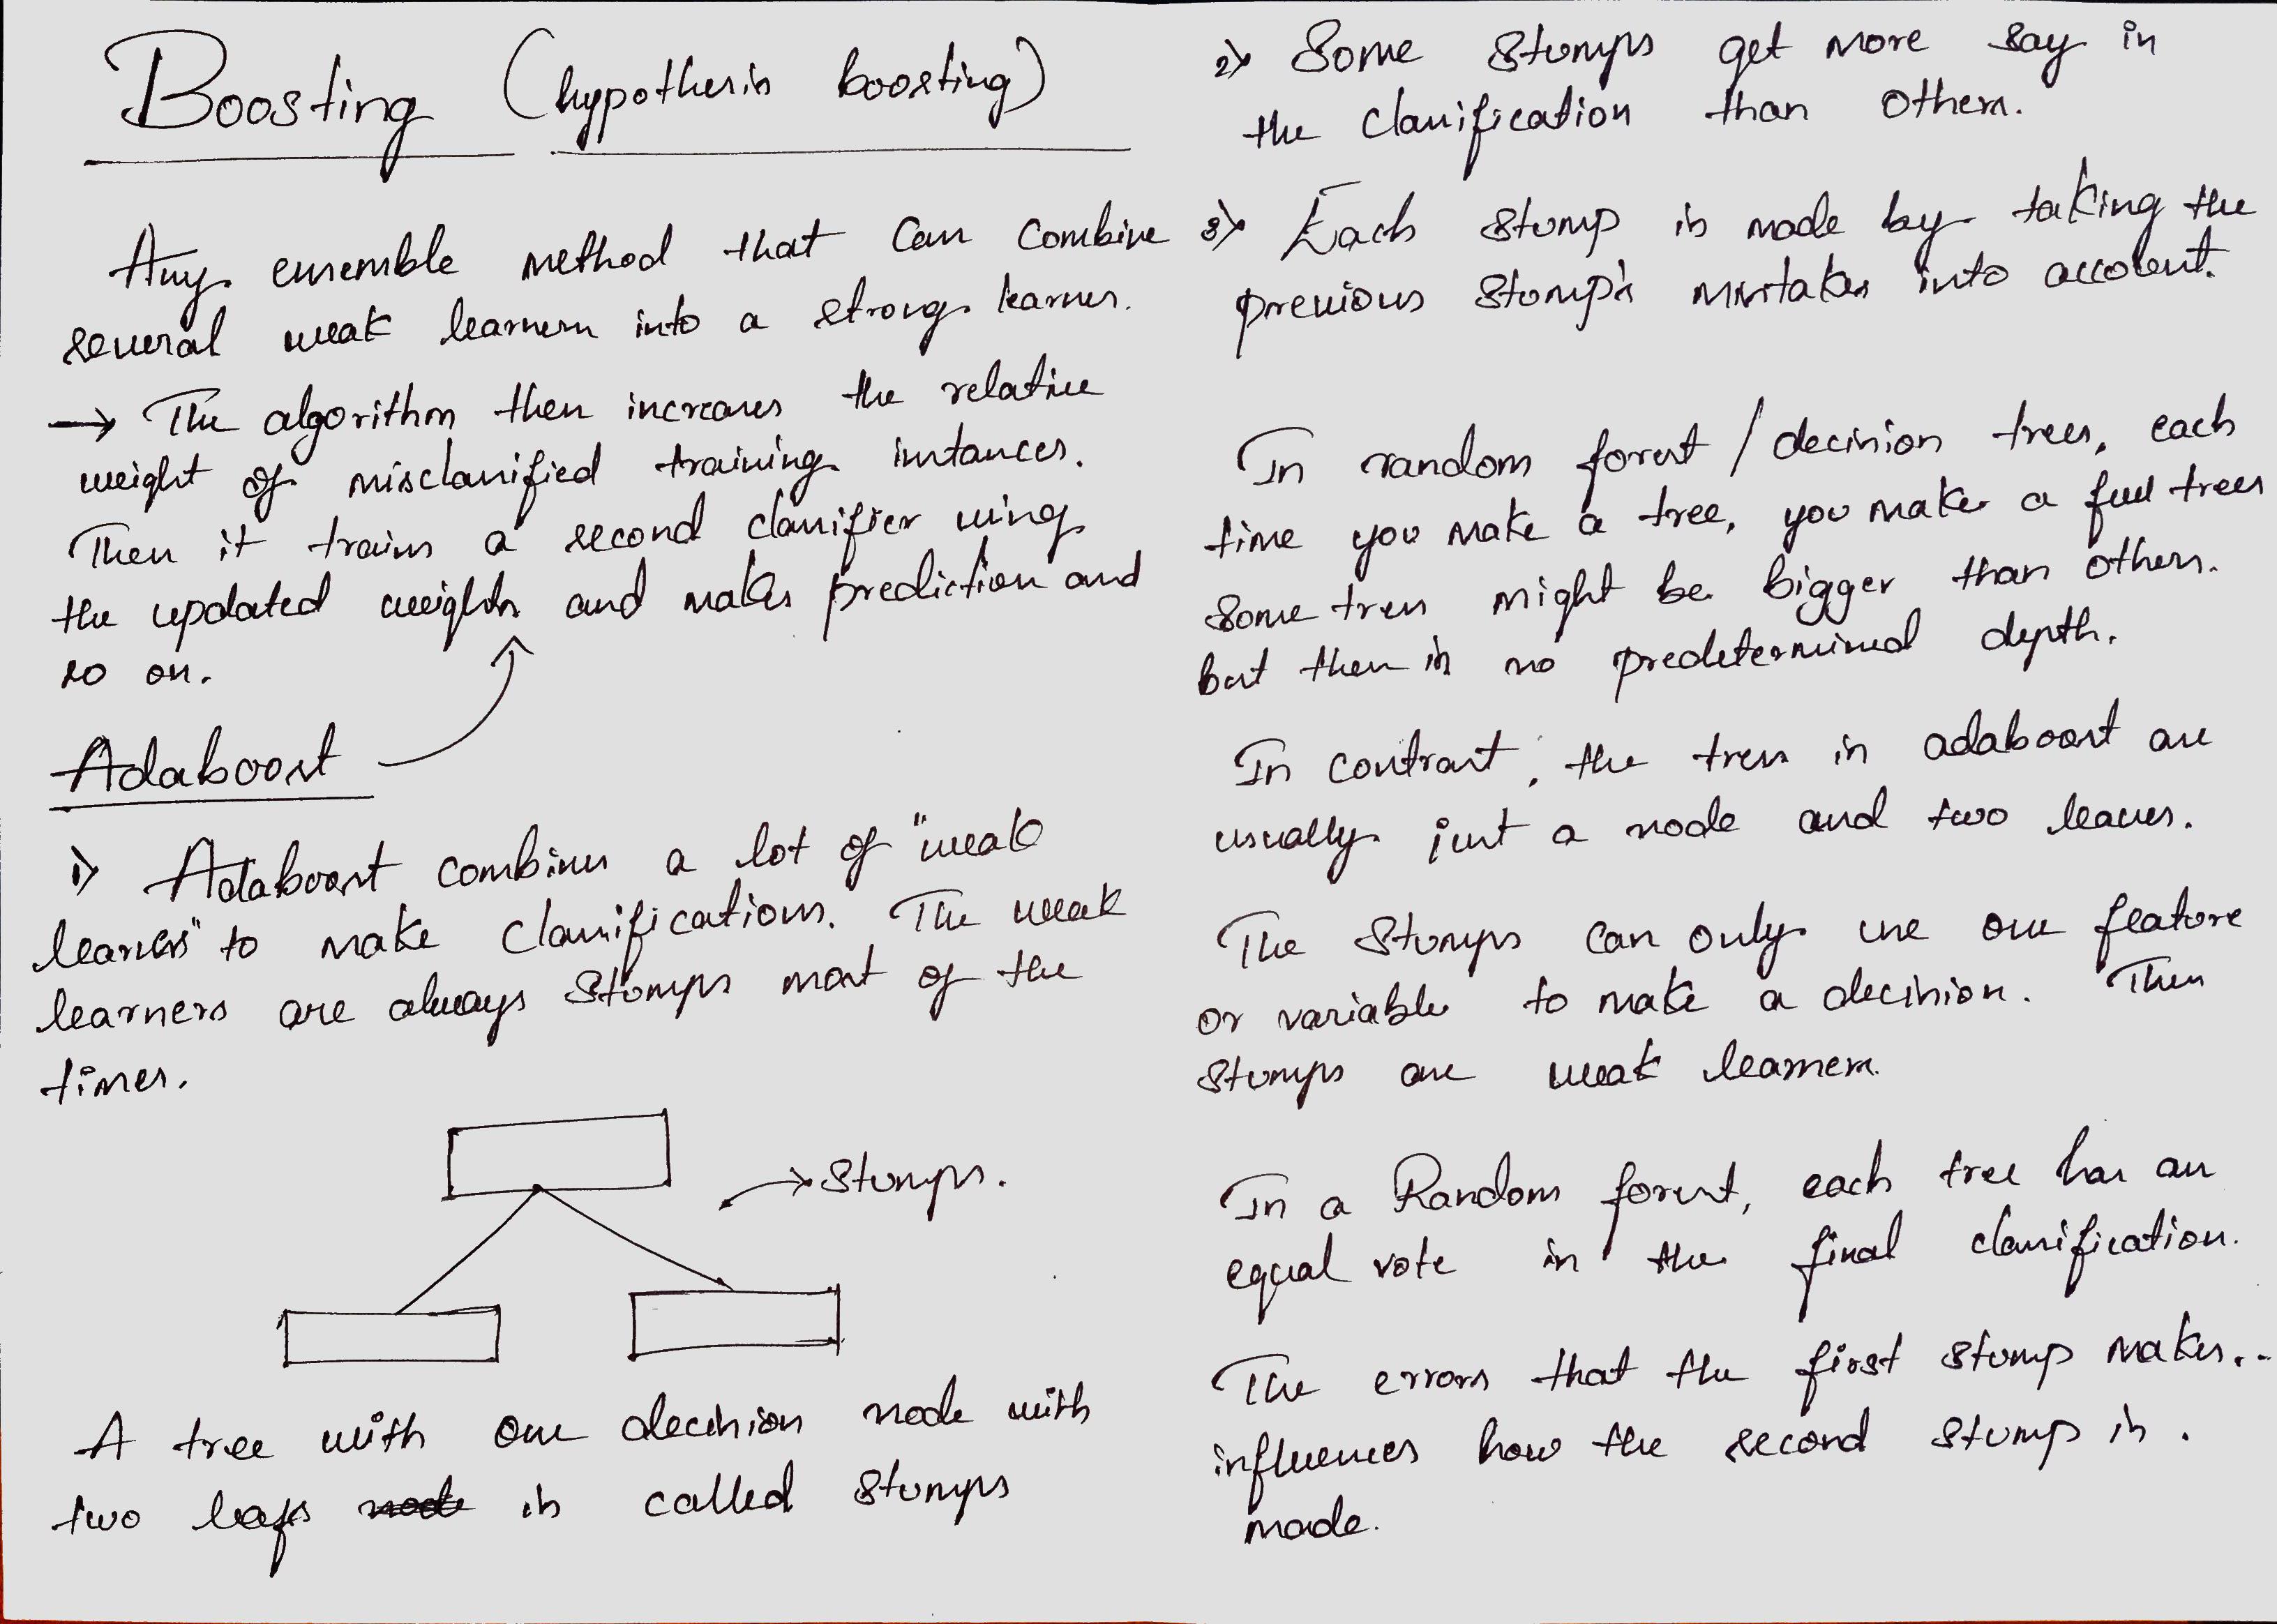 Boosting (hypothesis boosting)
Any ensemble method that can combine
several weak learners into a strong learner.
→ The algorithm then increases the relative
weight of misclassified training instances.
Then it trains a second classifier using
the updated weights and makes prediction and
so on.
Adaboost
1) Adaboost combines a lot of "weak
learners" to make classifications. The weak
learners are always stumps most of the
times.
Stumps.
A tree with one decision node with
two leafs node is called stumps
2) Some stumps get more say in
the classification than others.
3) Each stump is made by taking the
previous stump's mistakes into account.
In random forest / decision trees, each
time you make a tree, you make a full trees
some trees might be bigger than others.
but there is no predetermined depth.
In contrast, the trees in adaboost are
usually just a node and two leaves.
The stumps can only use one feature
or variable to make a decision. These
stumps are weak learners.
In a Random forest, each tree has an
equal vote in the final classification.
The errors that the first stump makes..
influences how the second stump is.
made.